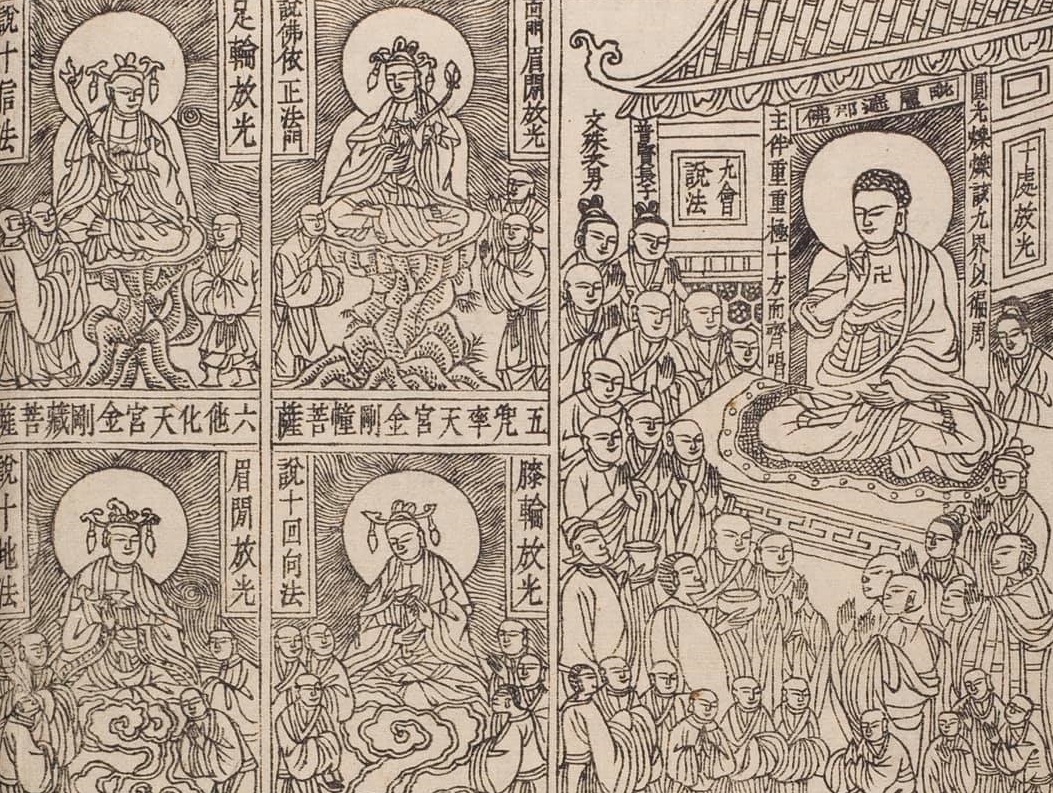 十處放光
圓光爍爍該九界以徧周
毗盧遮那佛
主伴重重極十方而齊唱
九會說法
普賢長子
文殊大男
面門眉間放光
說佛依正法門
足輪放光
說十信法
五兜率天宮金剛幢菩薩
膝輪放光
說十回向法
六他化天宮金剛藏菩薩
眉間放光
說十地法